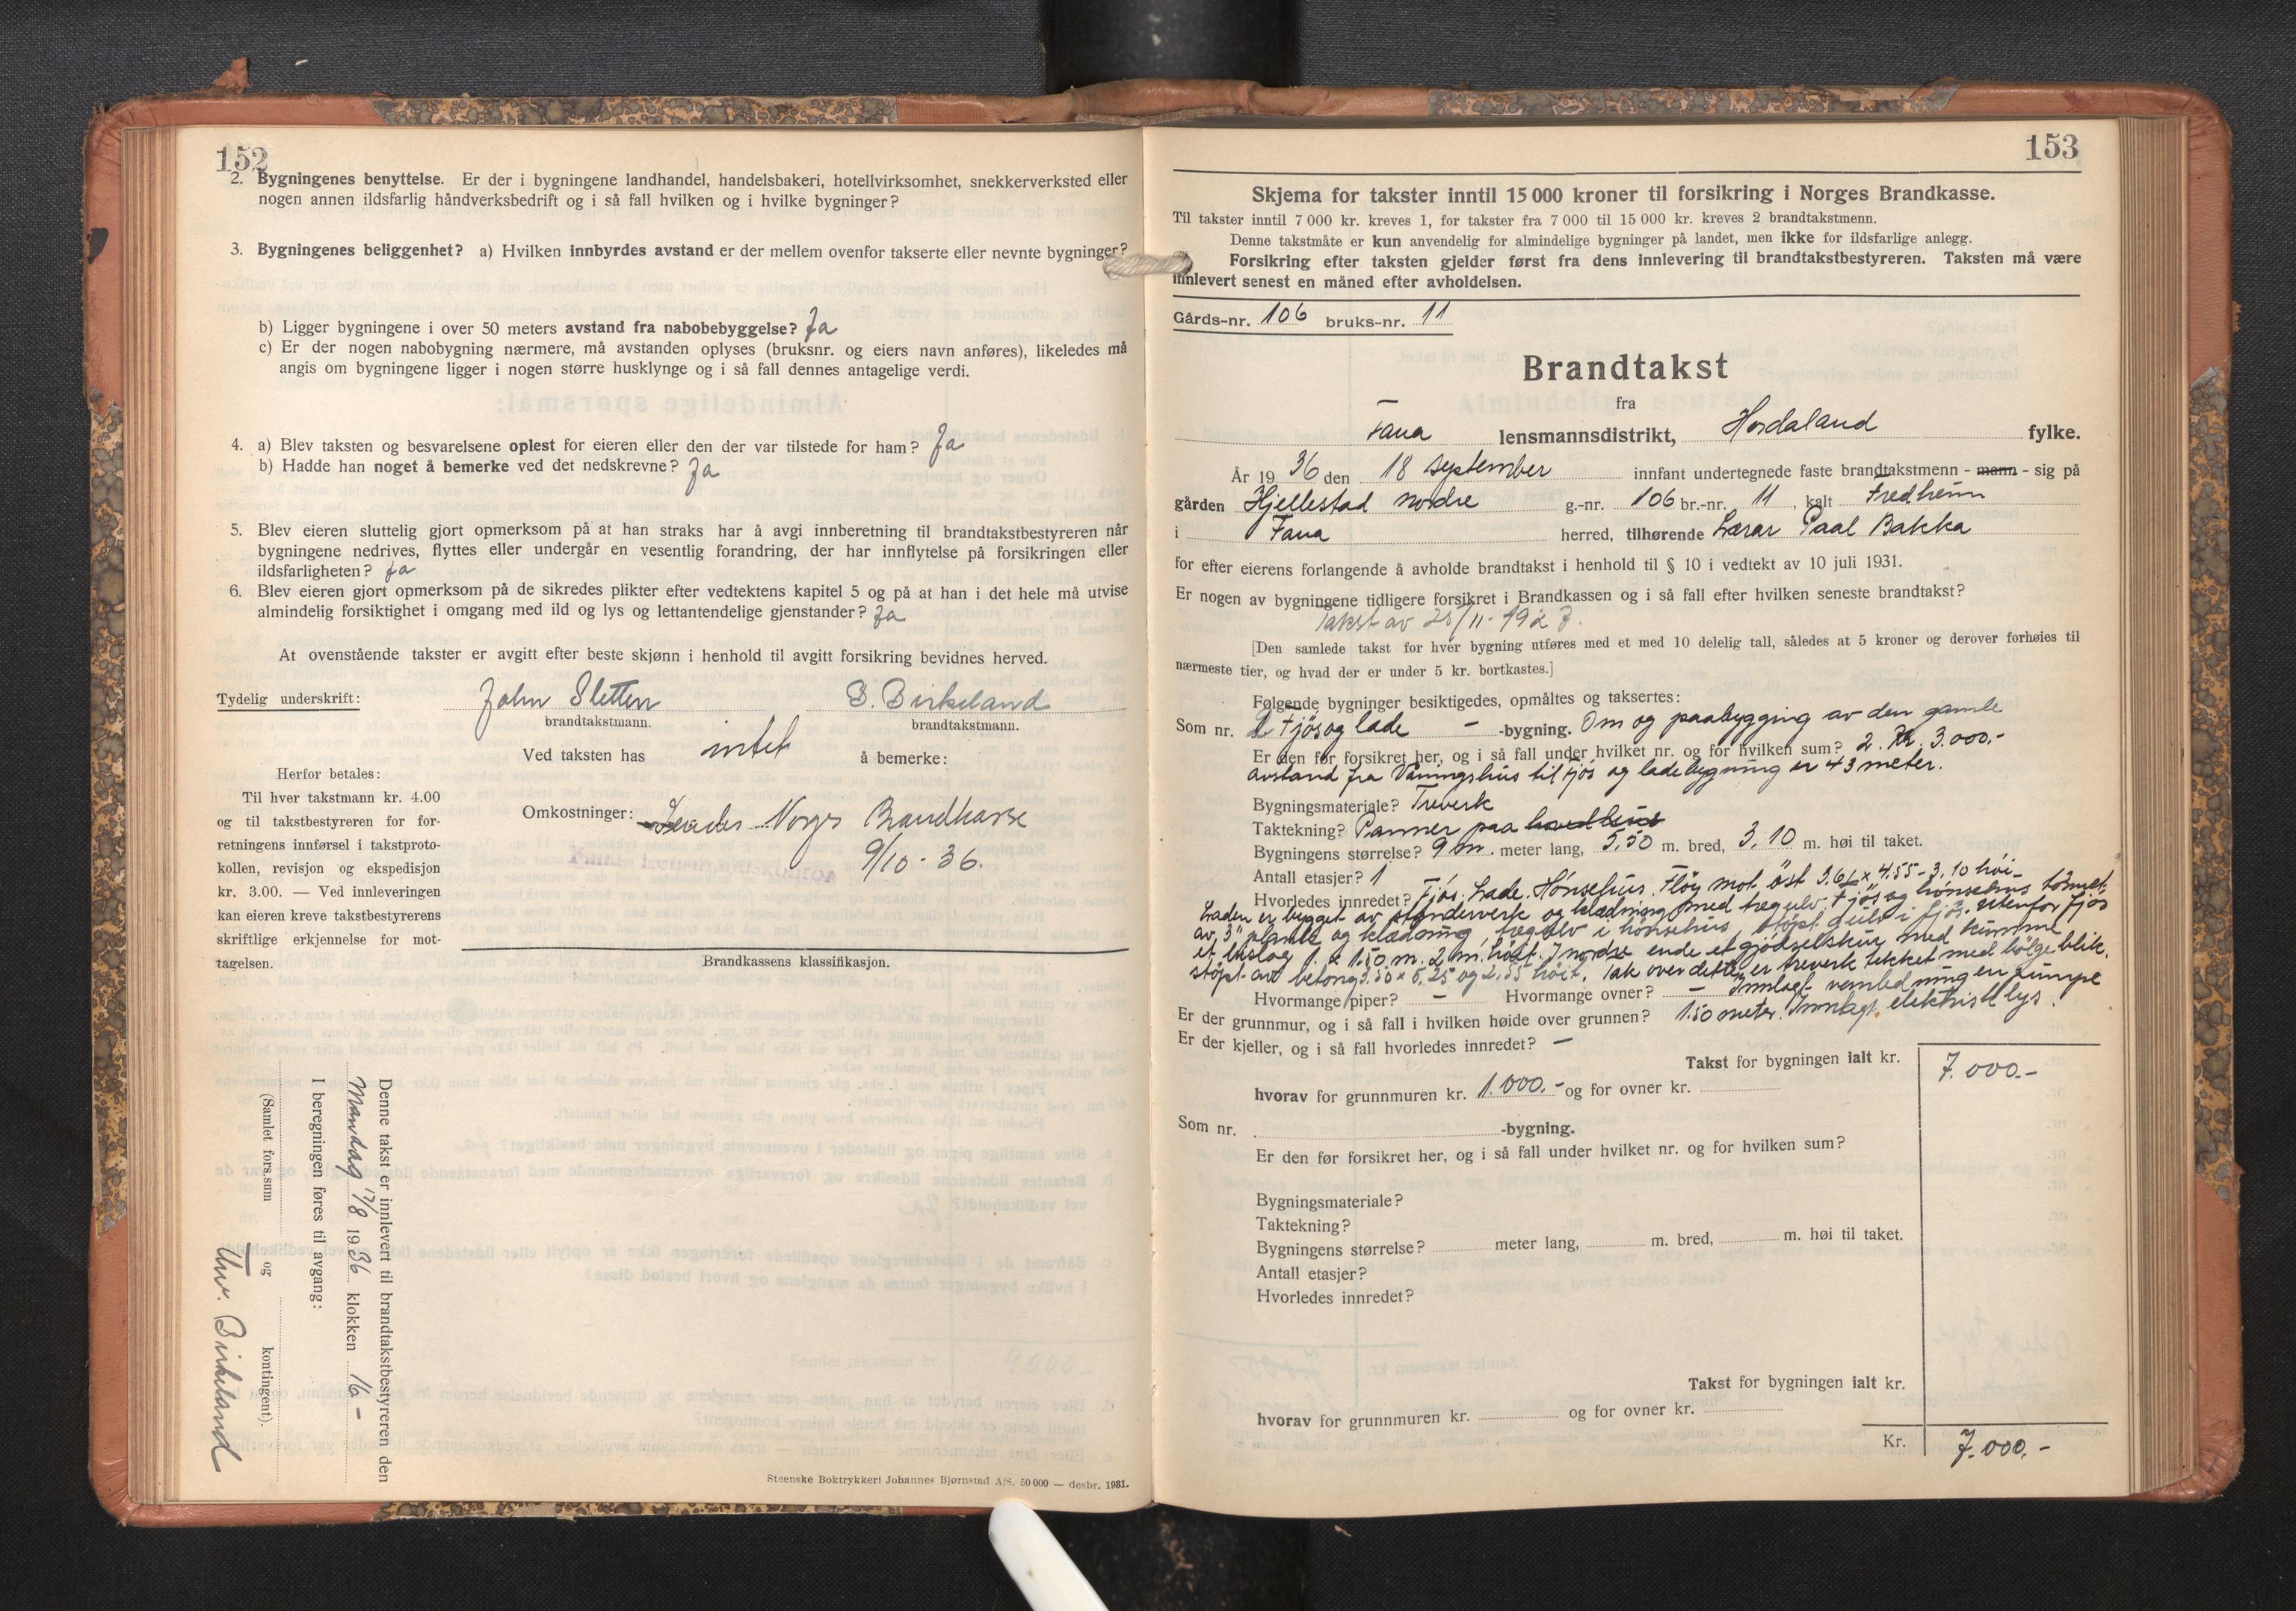 152
2. Bygningenes benyttelse. Er der i bygningene landhandel, handelsbakeri, hotellvirksomhet, snekkerverksted eller
nogen annen ildsfarlig håndverksbedrift og i så fall hvilken og i hvilke bygninger?
3. Bygningenes beliggenhet? a) Hvilken innbyrdes avstand er der mellem ovenfor takserte eller nevnte bygninger?
b) Ligger bygningene i over 50 meters avstand fra nabobebyggelse? Ja
c) Er der nogen nabobygning nærmere, må avstanden oplyses (bruksnr. og eiers navn anføres), likeledes må
angis om bygningene ligger i nogen større husklynge og i så fall dennes antagelige verdi.
4. a) Blev taksten og besvarelsene oplest for eieren eller den der var tilstede for ham? Ja
b) Hadde han noget å bemerke ved det nedskrevne? Ja
5. Blev eieren sluttelig gjort opmerksom på at han straks har å avgi innberetning til brandtakstbestyreren når
bygningene nedrives, flyttes eller undergår en vesentlig forandring, der har innflytelse på forsikringen eller
ildsfarligheten? Ja
6. Blev eieren gjort opmerksom på de sikredes plikter efter vedtektens kapitel 5 og på at han i det hele må utvise
almindelig forsiktighet i omgang med ild og lys og lettantendelige gjenstander? Ja
At ovenstående takster er avgitt efter beste skjønn i henhold til avgitt forsikring bevidnes herved.
Tydelig underskrift: John Sletten B. Birkeland
brandtakstmann. brandtakstmann.
Ved taksten has intet å bemerke:
Herfor betales:
Til hver takstmann kr. 4.00
og til takstbestyreren for for-
retningens innførsel i takstproto-
kollen, revisjon og ekspedisjon
kr. 3.00. — Ved innleveringen
kan eieren kreve takstbestyrerens
skriftlige erkjennelse for mot-
tagelsen.
Omkostninger: Norges Brandkasse
9/10 - 36.
Brandkassens klassifikasjon.
Denne takst er innlevert til brandtakstbestyreren den
Mandag 17/8 1936 klokken 16 -
I beregningen føres til avgang:
(Samlet fors.sum og kontingent).
Birkeland
Steenske Boktrykkeri Johannes Bjørnstad A/S. 50 000 — desbr. 1931.
153
Skjema for takster inntil 15 000 kroner til forsikring i Norges Brandkasse.
Til takster inntil 7 000 kr. kreves 1, for takster fra 7 000 til 15 000 kr. kreves 2 brandtakstmenn.
Denne takstmåte er kun anvendelig for almindelige bygninger på landet, men ikke for ildsfarlige anlegg.
Forsikring efter taksten gjelder først fra dens innlevering til brandtakstbestyreren. Taksten må være
innlevert senest en måned efter avholdelsen.
Gårds-nr. 106 bruks-nr. 11
Brandtakst
fra
Fana lensmannsdistrikt, Hordaland fylke.
År 19 36 den 18 september innfant undertegnede faste brandtakstmenn - mann - sig på
gården Hjellestad nordre g.-nr. 106 br.-nr. 11, kalt Fredheim
i Fana herred, tilhørende Lærar Paal Bakka
for efter eierens forlangende å avholde brandtakst i henhold til § 10 i vedtekt av 10 juli 1931.
Er nogen av bygningene tidligere forsikret i Brandkassen og i så fall efter hvilken seneste brandtakst?
Takst av 25/11 - 1927.
[Den samlede takst for hver bygning utføres med et med 10 delelig tall, således at 5 kroner og derover forhøies til
nærmeste tier, og hvad der er under 5 kr. bortkastes.]
Følgende bygninger besiktigedes, opmåltes og taksertes:
Som nr. 2 Fjös og lade - -bygning. Om og paabygging av den gamle
Er den før forsikret her, og i så fall under hvilket nr. og for hvilken sum? 2. Kr. 3.000.-
avstand fra Vaaningshus til fjös og ladebygning er 43 meter.
Bygningsmateriale? Treverk
Taktekning? Panner paa
Bygningens størrelse? 9 m. meter lang, 5,50 m. bred, 3.10 m. høi til taket.
Antall etasjer? 1
Hvorledes innredet? Fjös. Lade. Hönsehus. Flöy mot öst 3.65 x 4.55 - 3.10 höi-
Laden er bygget av standerverk og klædning med trægulv. Fjös og hönsehus tömret
av 3" planke og klædning, trægulv i hönsehus, stöpt gulv i fjös. Utenfor fjös
et x 1.50 m. 2 m. höit. I nordre ende et gjödselskur med kumme
stöpt av betong 3.50 x 5,25 og 2,55 höit. Tak over dette er treverk tekket med bölgeblik.
Hvormange piper? - Hvormange ovner? - Innlagt vannledning en pumpe
Er der grunnmur, og i så fall i hvilken høide over grunnen? 1.50 meter. Innlagt elektrisk lys.
Er der kjeller, og i så fall hvorledes innredet? -
Takst for bygningen ialt kr. 7.000.-
hvorav for grunnmuren kr. 1.000.- og for ovner kr.
Som nr. -bygning.
Er den før forsikret her, og i så fall under hvilket nr. og for hvilken sum?
Bygningsmateriale?
Taktekning?
Bygningens størrelse? meter lang, m. bred, m. høi til taket.
Antall etasjer?
Hvorledes innredet?
Takst for bygningen ialt kr.
hvorav for grunnmuren kr. og for ovner kr.
Kr. 7.000.-